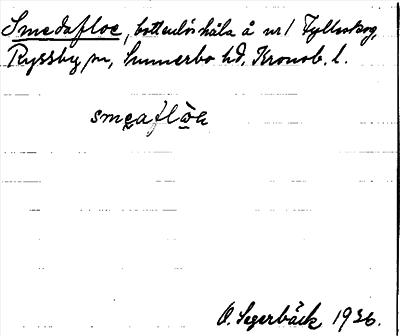 Smedafloe, bottenlös håla å nr 1 Fylleskog,
Ryssby sn, Sunnerbo hd, Kronob. l.
smeaflòe
O. Segerbäck 1936.